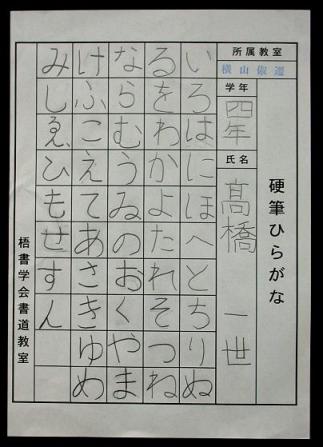 硬筆ひらがな
所属教室
横山
学年
四年
氏名
髙橋 一世
いろはにほへとちりぬ
るをわかよたれそつね
ならむうゐのおくやま
けふこえてあさきゆめ
みしゑひもせすん
梧書学会書道教室